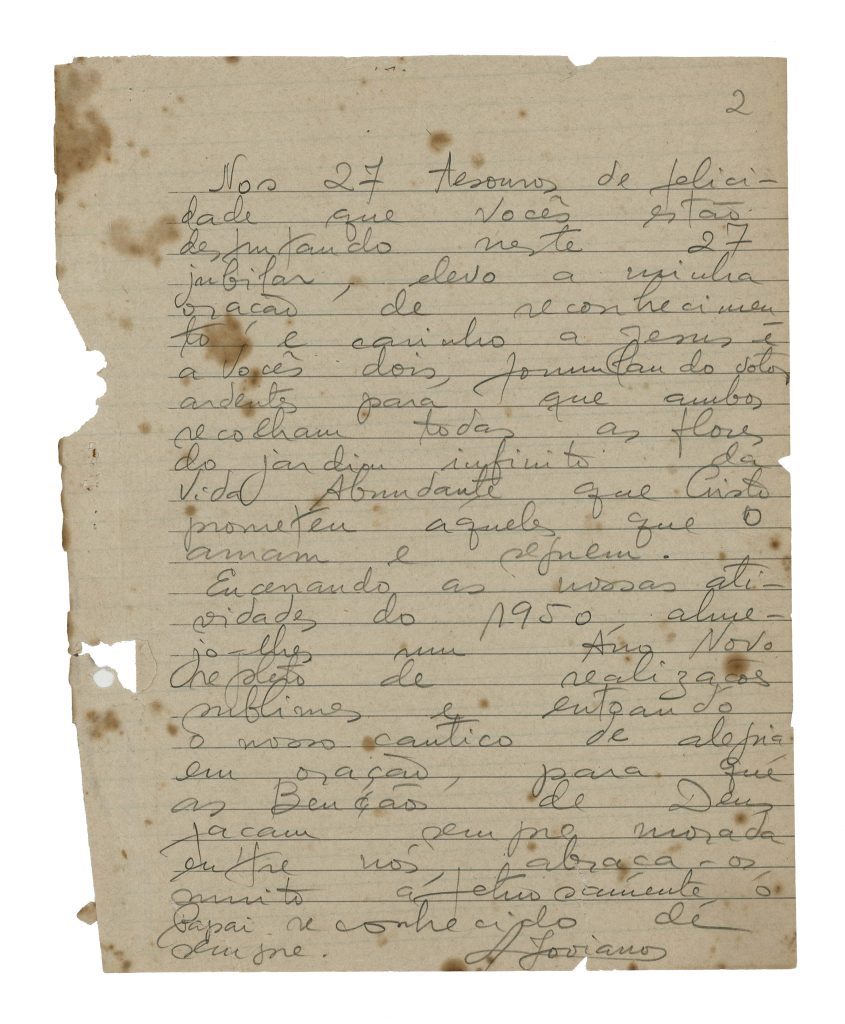 2
Nos 27 tesouros de felici-
dade que vocês estão
desfrutando neste 27
jubilar, elevo a minha
oração de reconhecimen
to e carinho a Jesus e
a vocês dois, formulando votos
ardentes para que ambos
recolham todas as flores
do jardim infinito da
Vida Abundante que Cristo
prometeu àqueles que O
amam e seguem.
Encerrando as nossas ati-
vidades do 1950, alme-
jo-lhes um Ano Novo
repleto de realizações
sublimes e entoando
o nosso cantico de alegria
em oração, para que
as Bençãos de Deus
façam sempre morada
entre nós, abraça-os
muito afetuosamente o
Papai reconhecido de
sempre. Joviano